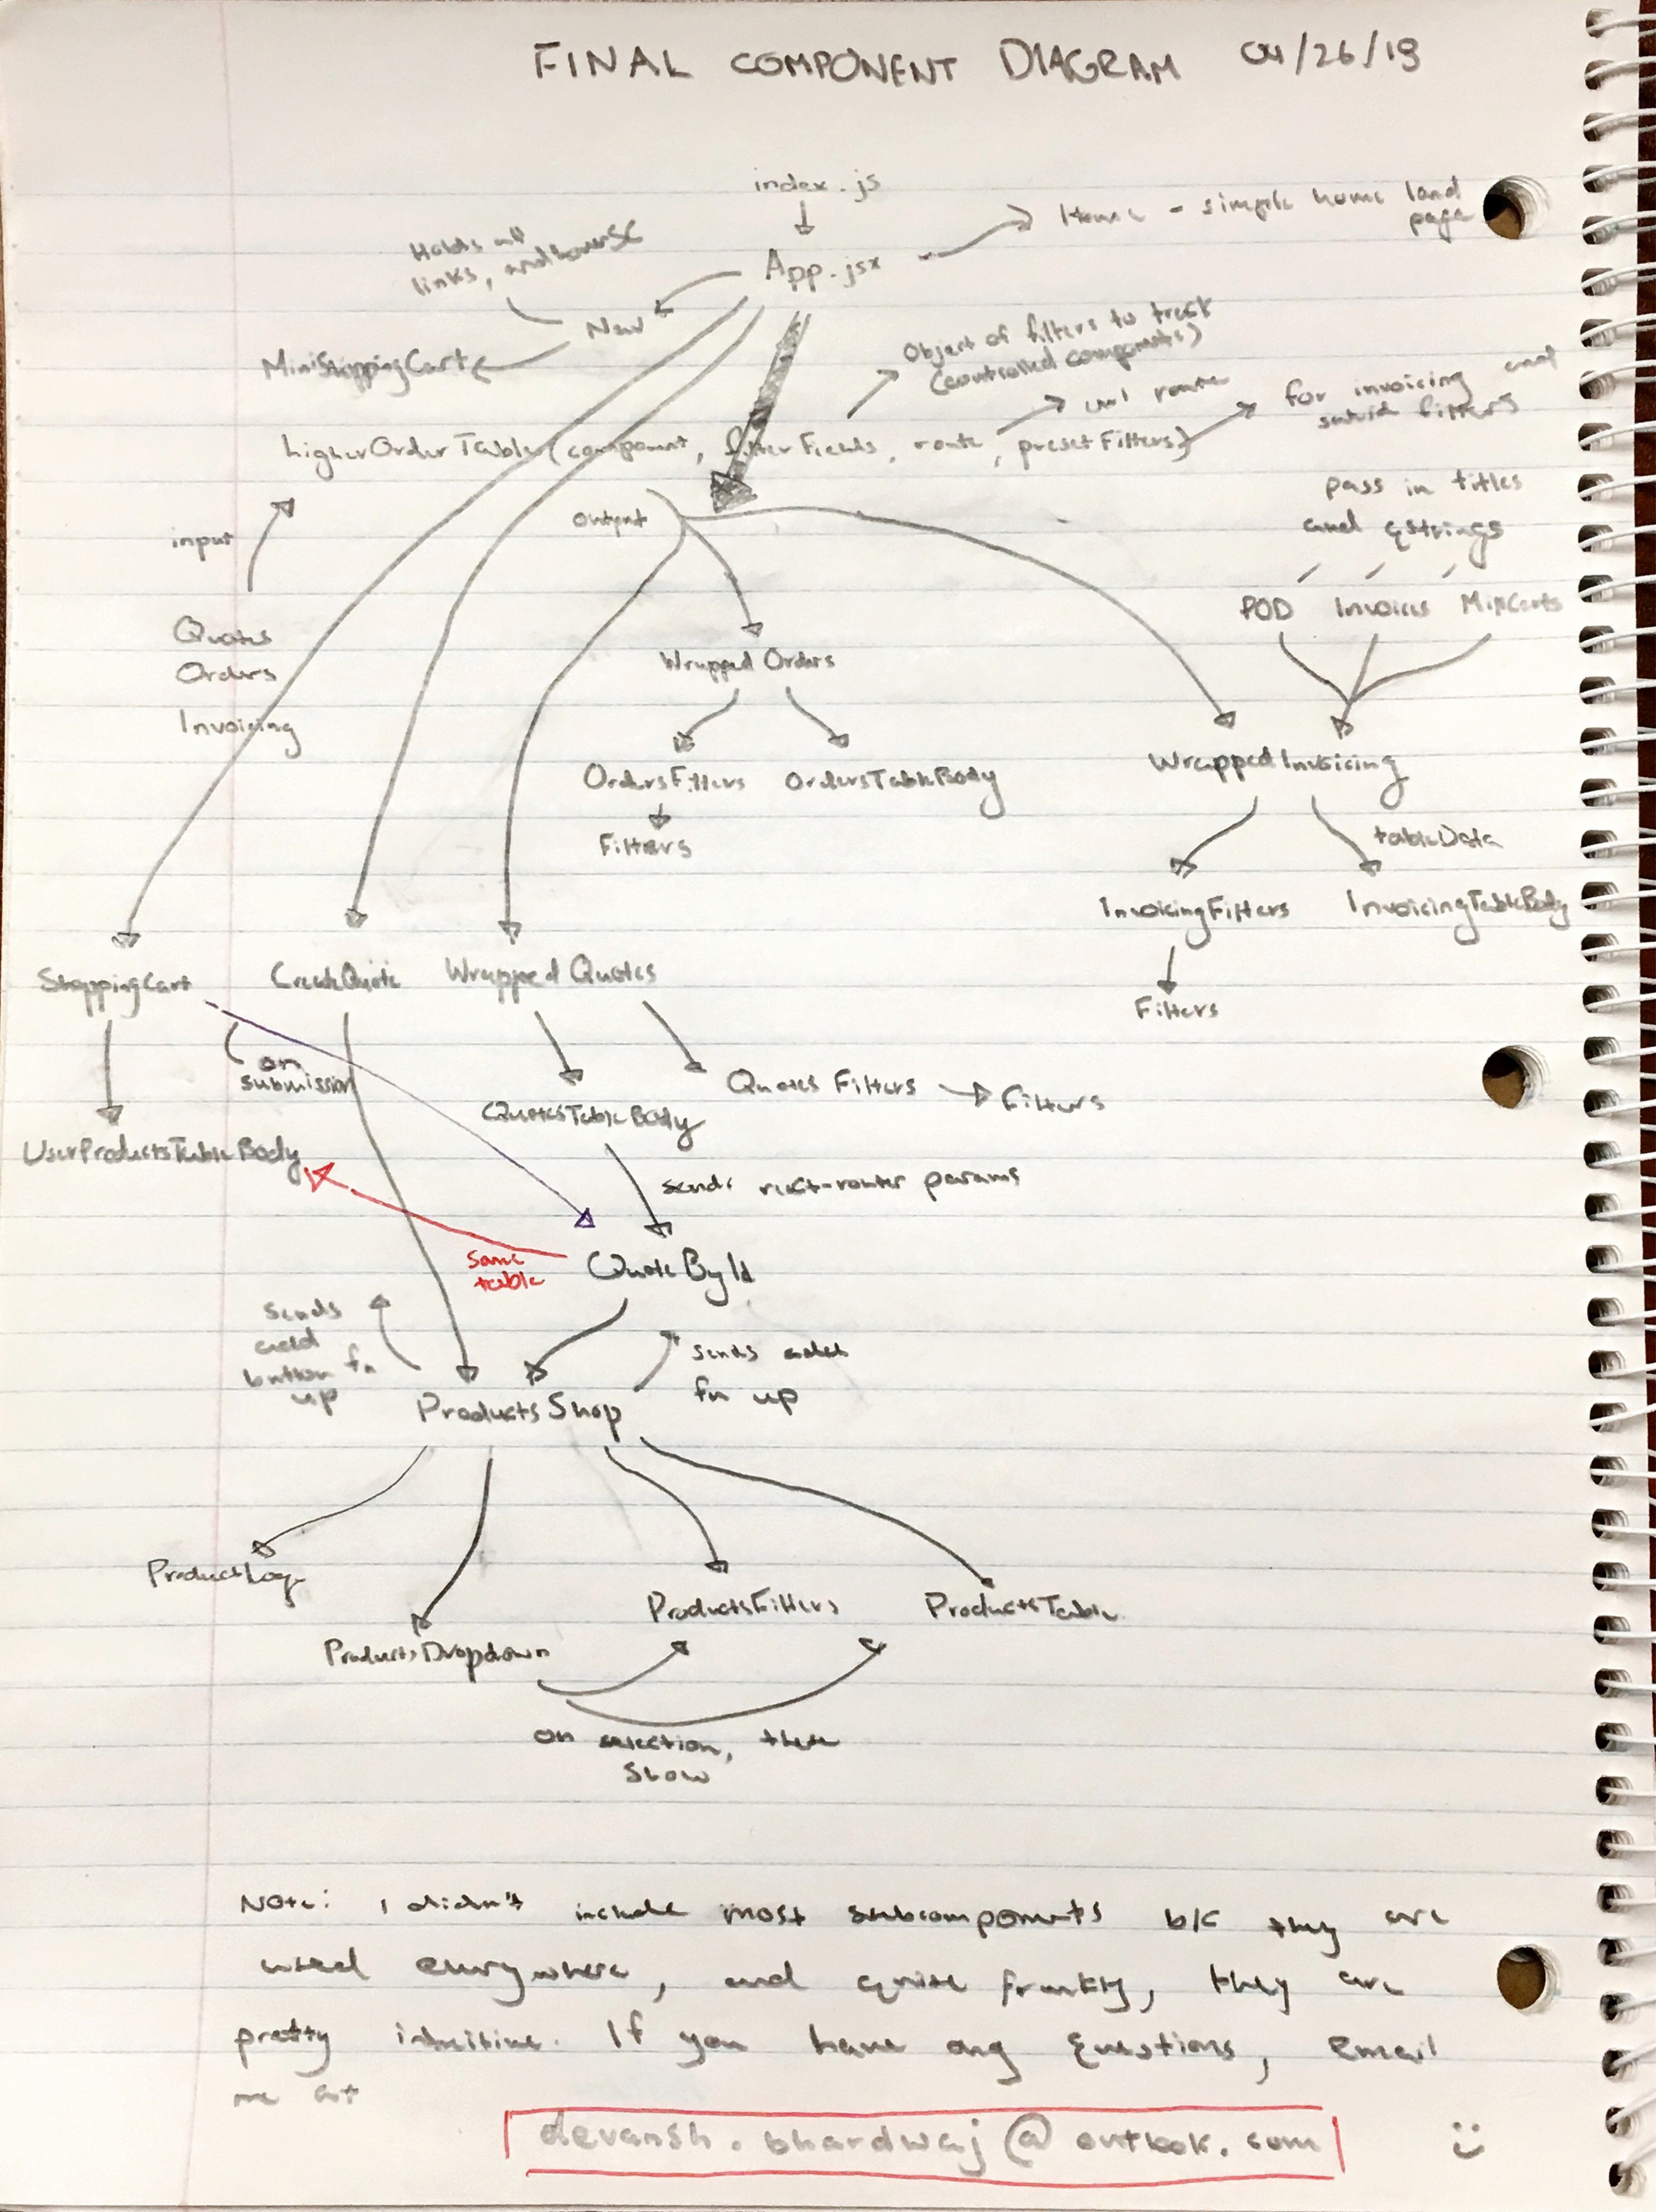 FINAL COMPONENT DIAGRAM 04/26/19
index.js
Home - simple home land
page
App.jsx
Holds all
links, and
Nav
MiniShoppingCart
Object of filters to track
(controlled components)
url route
for invoicing and
filters
higherOrderTable(component, filterFields, route, presetFilters)
pass in titles
and qstrings
output
input
POD Invoices MillCerts
Quotes
Orders
Invoicing
Wrapped Orders
WrappedInvoicing
OrdersFilters OrdersTableBody
tableData
Filters
InvoicingFilters InvoicingTableBody
ShoppingCart CreateQuote Wrapped Quotes
Filters
on
submission
Quotes Filters Filters
QuotesTableBody
UserProductsTableBody
sends react-router params
same
table
QuoteById
sends
add
button fn
up
sends added
fn up
Products Shop
ProductLog
ProductsFilters ProductsTable
ProductsDropdown
on selection, these
show
Note: I didn't include most subcomponents b/c they are
used everywhere, and quite frankly, they are
pretty intuitive. If you have any questions, email
me at
devansh.bhardwaj@outlook.com :)